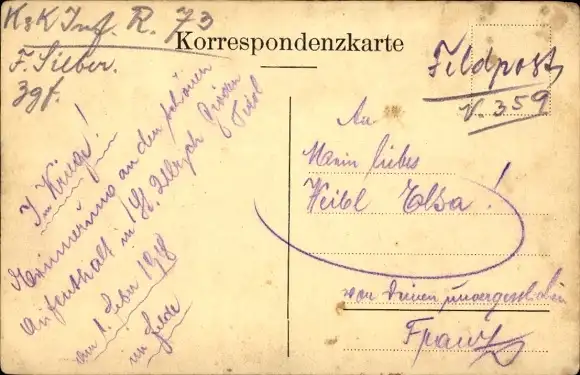 K & K Inf. R. 73
F. Sieber.
Zgf.
Korrespondenzkarte
Feldpost
N. 359
Im Kriege!
Erinnerung an den schönen
Aufenthalt in St. Ulrich Gröden
Tirol
am 1. Feber 1918
im Felde
An
Mein liebes
Weibl Elsa!
von Deinen unvergesslichen
Franz